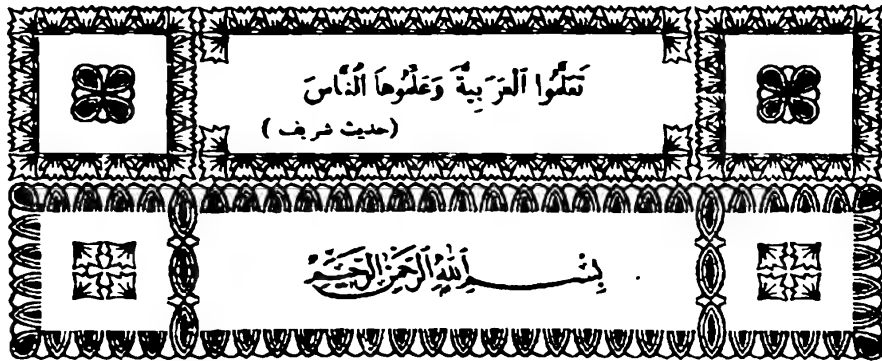 تَعَلَّمُوا الْعَرَبِيَّةَ وَعَلِّمُوهَا النَّاسَ
(حديث شريف)
بِسْمِ اللَّهِ الرَّحْمَنِ الرَّحِيمِ